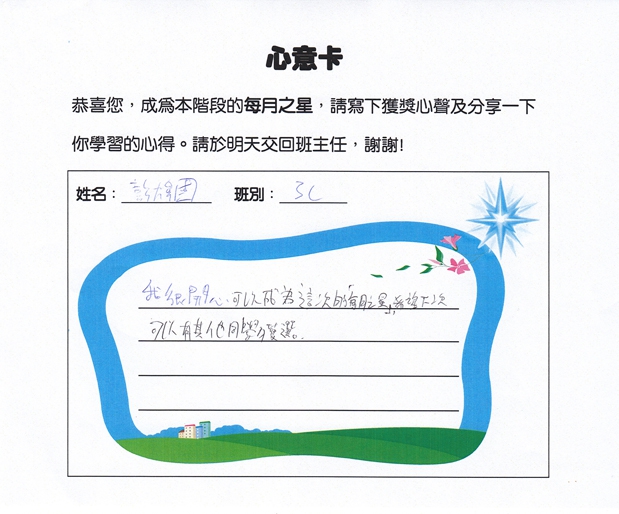 心意卡
恭喜您，成為本階段的每月之星，請寫下獲獎心聲及分享一下
你學習的心得。請於明天交回班主任，謝謝!
姓名： 班別： 3C
我很開心，可以成為這次的每月之星，希望下次
可以有其他同學參選。